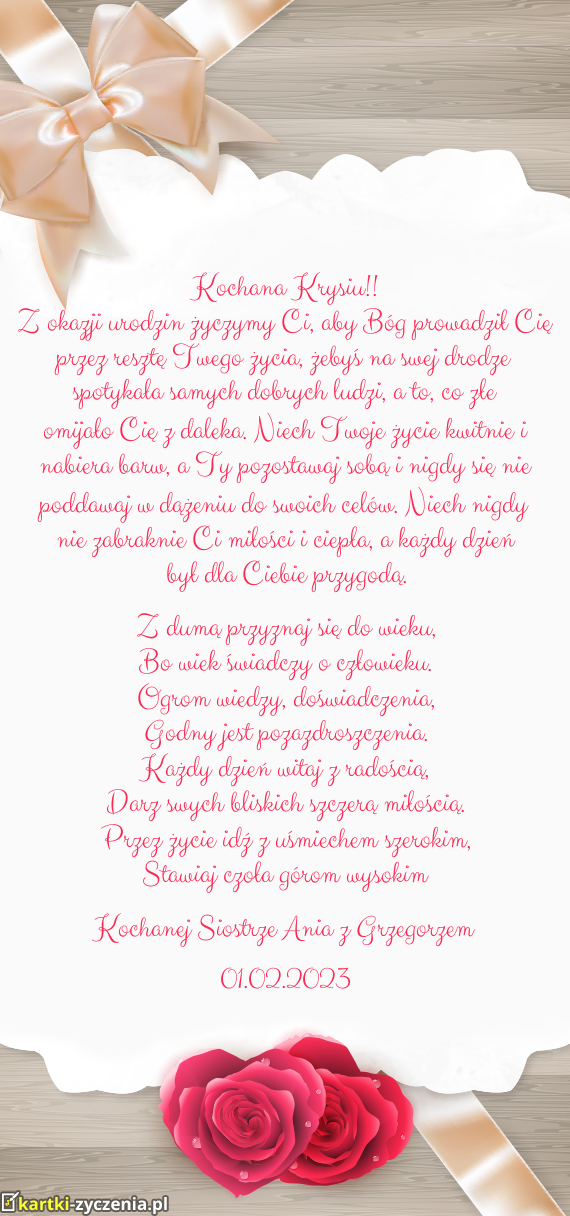 Kochana Krysiu!!
Z okazji urodzin życzymy Ci, aby Bóg prowadził Cię
przez resztę Twego życia, żebyś na swej drodze
spotykała samych dobrych ludzi, a to, co złe
omijało Cię z daleka. Niech Twoje życie kwitnie i
nabiera barw, a Ty pozostawaj sobą i nigdy się nie
poddawaj w dążeniu do swoich celów. Niech nigdy
nie zabraknie Ci miłości i ciepła, a każdy dzień
był dla Ciebie przygodą.
Z dumą przyznaj się do wieku,
Bo wiek świadczy o człowieku.
Ogrom wiedzy, doświadczenia,
Godny jest pozazdroszczenia.
Każdy dzień witaj z radością,
Darz swych bliskich szczerą miłością.
Przez życie idź z uśmiechem szerokim,
Stawiaj czoła górom wysokim
Kochanej Siostrze Ania z Grzegorzem
01.02.2023
kartki-zyczenia.pl